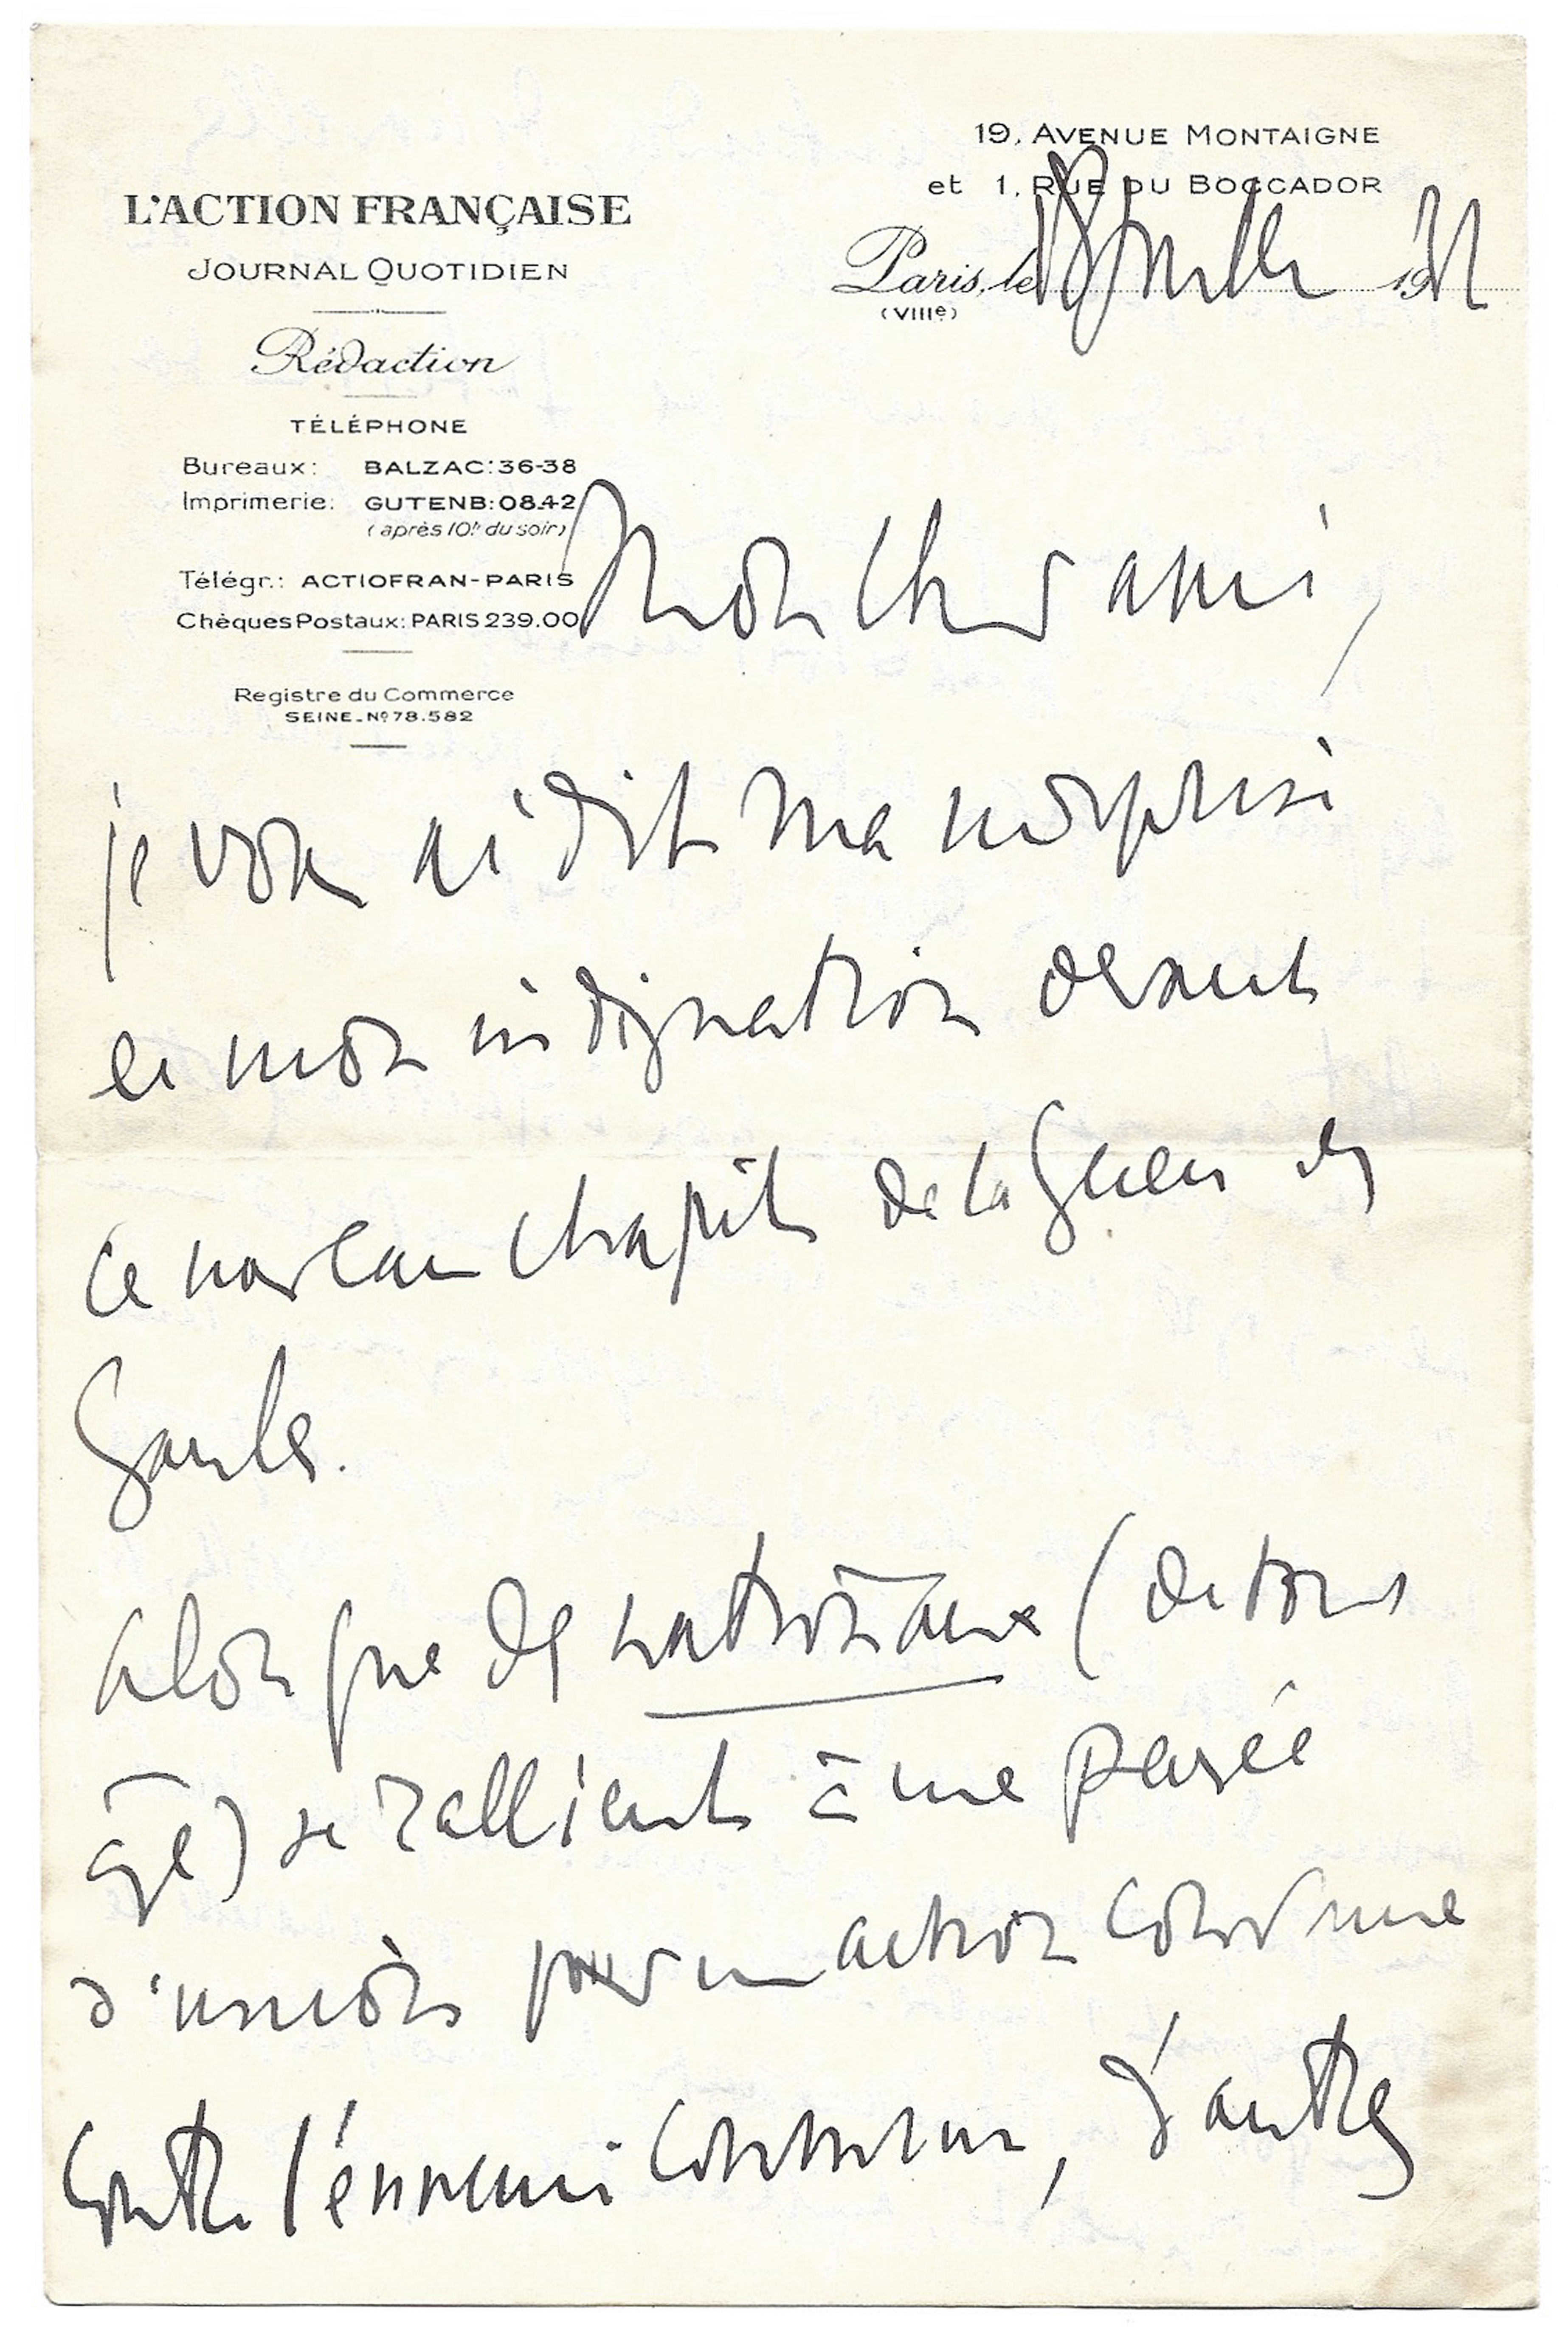 19, AVENUE MONTAIGNE
et 1, RUE DU BOCCADOR
L'ACTION FRANÇAISE
JOURNAL QUOTIDIEN
Paris, le 18 juillet 19
(VIIIe)
Rédaction
TÉLÉPHONE
Bureaux: BALZAC: 36-38
Imprimerie: GUTENB: 08.42
(après 10h du soir)
Télégr.: ACTIOFRAN-PARIS
Chèques Postaux: PARIS 239.00
Registre du Commerce
SEINE_Nº 78.582
Mon cher ami,
je vous ai dit ma surprise
et mon indignation devant
ce nouveau chapitre de la Guerre des
Gaules.
Alors que des nationaux (de tout
âge) se rallient à une pensée
d'union pour une action commune
contre l'ennemi commun, d'autres